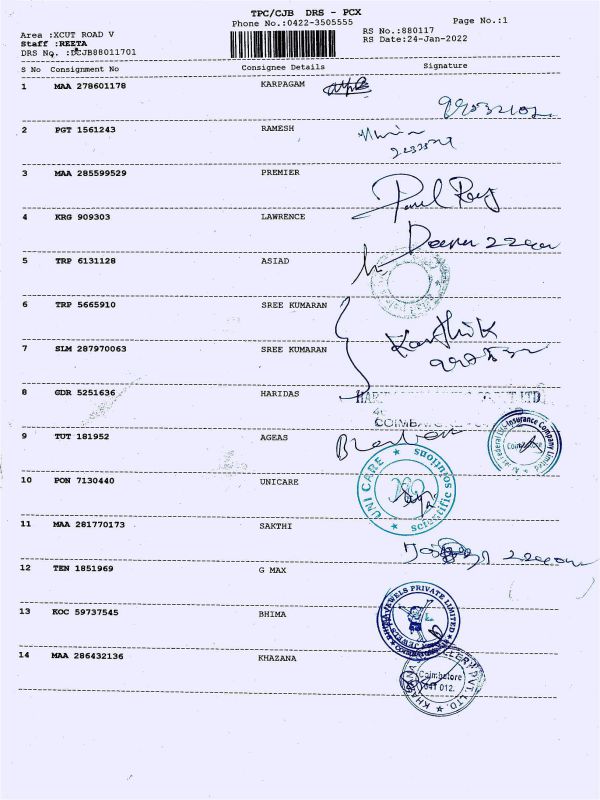 TPC/CJB DRS - PCX
Phone No.:0422-3505555
Page No.:1
Area :XCUT ROAD V
Staff :REETA
DRS No. :DCJB88011701
RS No.:880117
RS Date:24-Jan-2022
S No Consignment No Consignee Details Signature
1 MAA 278601178 KARPAGAM
2 PGT 1561243 RAMESH
3 MAA 285599529 PREMIER
Paul Roy
4 KRG 909303 LAWRENCE
5 TRP 6131128 ASIAD
6 TRP 5665910 SREE KUMARAN
Karthik
7 SLM 287970063 SREE KUMARAN
8 GDR 5251636 HARIDAS
PVT LTD
9 TUT 181952 AGEAS
Insurance Company Limited
10 PON 7130440 UNICARE
UNI CARE scientific solutions
11 MAA 281770173 SAKTHI
12 TEN 1851969 G MAX
13 KOC 59737545 BHIMA
JEWELS PRIVATE LIMITED
14 MAA 286432136 KHAZANA
Coimbatore
641 012.